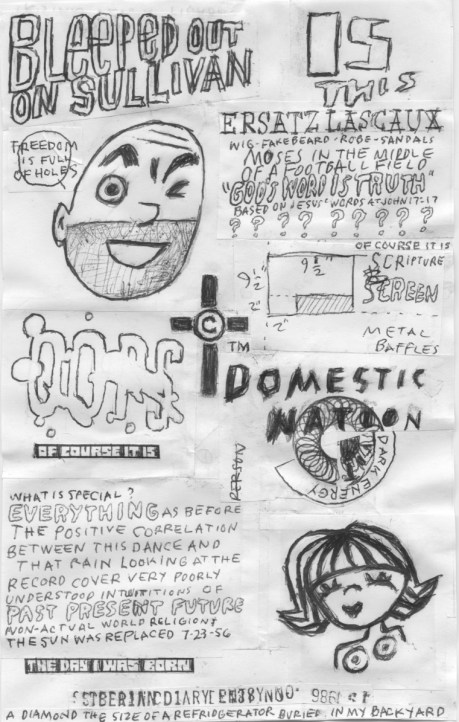 BLeepeD OUT
ON SULLIVAN
IS
THIS
FREEDOM
IS FULL
OF HOLES
ERSATZ LASCAUX
WIG-FAKEBEARD-ROBE-SANDALS
MOSES IN THE MIDDLE
OF A FOOTBALL FIELD
"GOD'S WORD IS TRUTH"
BASED ON JESUS' WORDS AT JOHN 17:17
? ? ? ? ? ? ? ?
OF COURSE IT IS
SCRIPTURE
SCREEN
9½"
9½"
2"
2"
METAL
BAFFLES
C
TM
DOMESTIC
NATION
OF COURSE IT IS
PERSON
DARK ENERGY
WHAT IS SPECIAL?
EVERYTHING AS BEFORE
THE POSITIVE CORRELATION
BETWEEN THIS DANCE AND
THAT RAIN LOOKING AT THE
RECORD COVER VERY POORLY
UNDERSTOOD INTUITIONS OF
PAST PRESENT FUTURE
NON-ACTUAL WORLD RELIGIONS
THE SUN WAS REPLACED 7-23-56
THE DAY I WAS BORN
A DIAMOND THE SIZE OF A REFRIDGERATOR BURIED IN MY BACKYARD